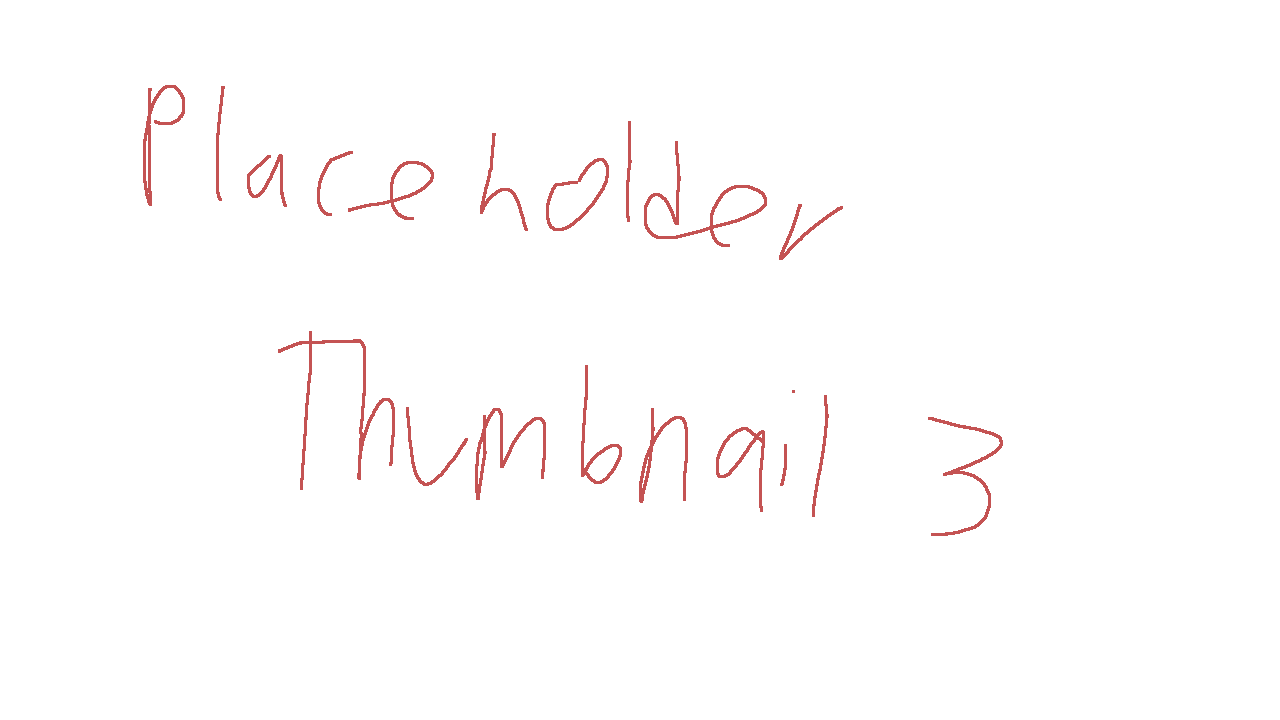 Placeholder
Thumbnail 3